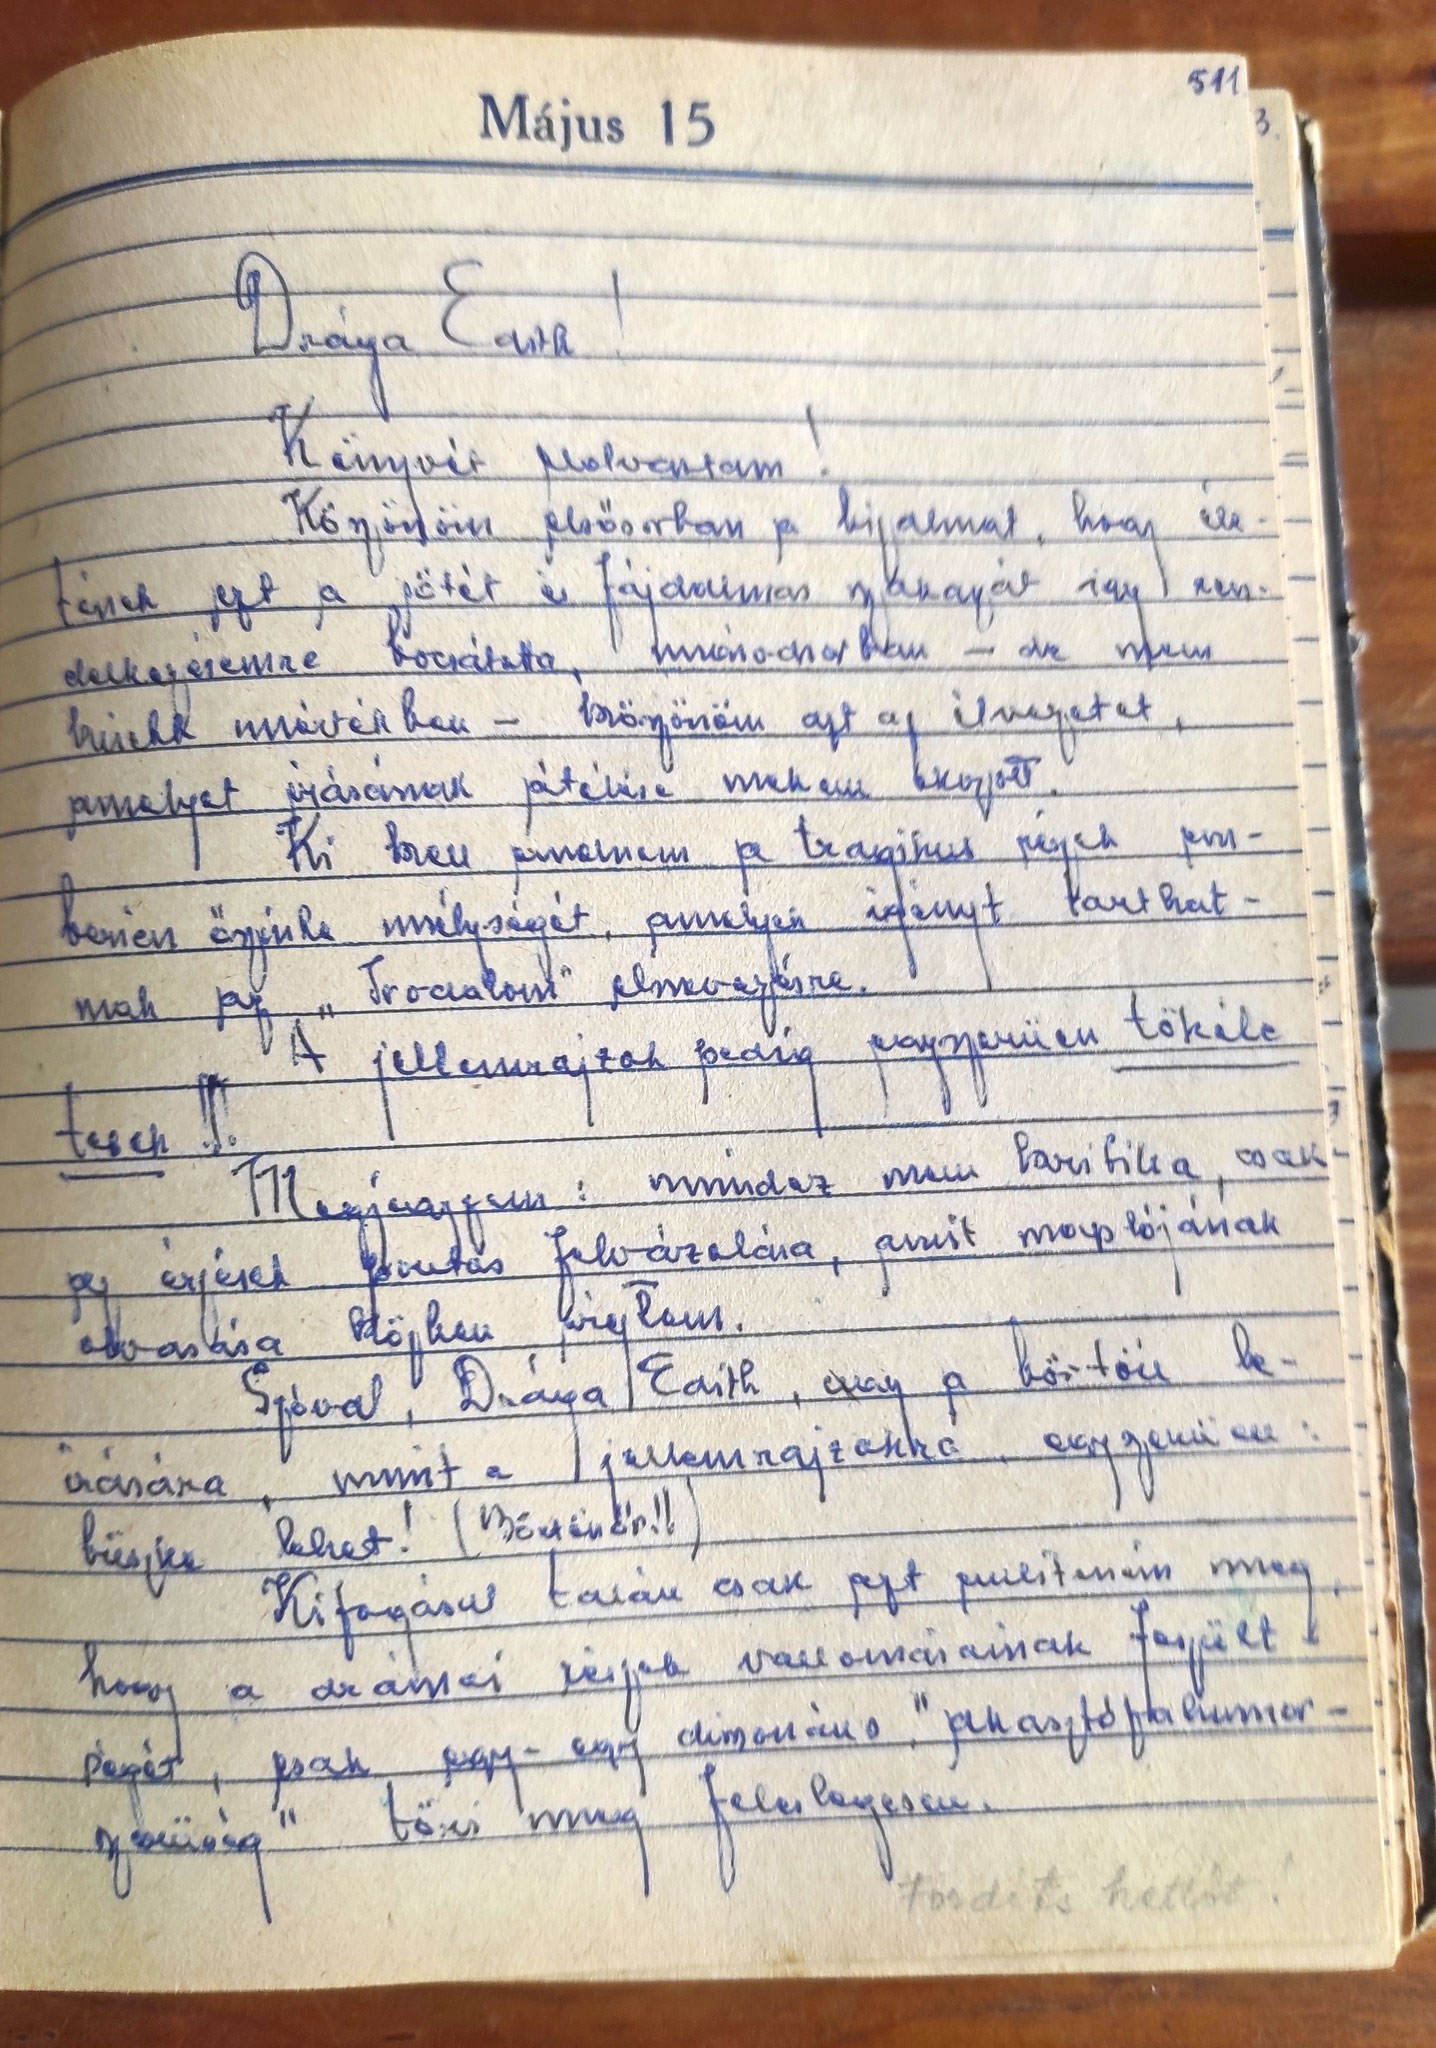 511
Május 15
3.
Drága Edith!
Könyvét elolvastam!
Köszönöm elsősorban a bizalmat, hogy éle-
tének ezt a sötét és fájdalmas szakaszát így ren-
delkezésemre bocsátotta, másodsorban – de nem
kisebb mértékben – köszönöm azt az élvezetet,
amelyet írásának átélése nekem okozott.
Ki kell emelnem a tragikus részek em-
berien őszinte mélységét, amelyek igényt tarthat-
nak az "Irodalom" elnevezésre.
A jellemrajzok pedig egyszerűen tökéle
tesek!!!
Megjegyzem: mindez nem kritika, csak
az érzések felvázolása, amit naplójának
olvasása közben éreztem.
Szóval, Drága Edith, úgy a börtön le-
írására, mint a jellemrajzokra, egyszerűen:
büszke lehet! (Börtönőr!!)
Kifogásul talán csak ezt említeném meg,
hogy a drámai részek vallomásainak feszült-
ségét, csak egy-egy "akasztófahumor-
szerűség" töri meg feleslegesen.
Fordíts kettőt!